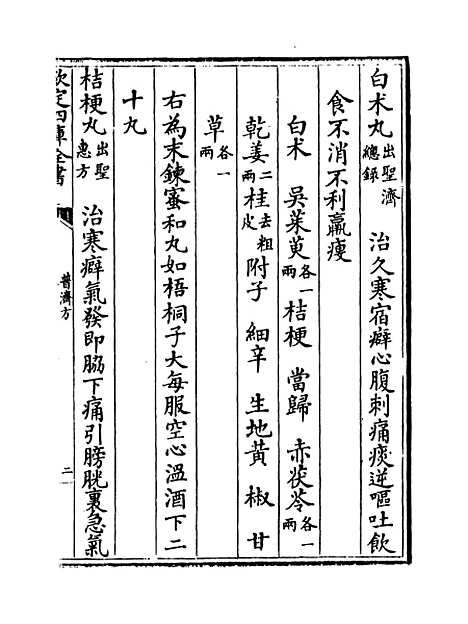 白术丸出聖濟總錄　治久寒宿癖心腹刺痛痰逆嘔吐飲
食不消不利羸瘦
白术　吳茱萸各一兩　桔梗　當歸　赤茯苓各一兩
乾姜二兩　桂去粗皮　附子　細辛　生地黃　椒　甘
草各一兩
右為末鍊蜜和丸如梧桐子大每服空心溫酒下二
十丸
桔梗丸出聖惠方　治寒癖氣發即脇下痛引膀胱裏急氣
欽定四庫全書
普濟方
二